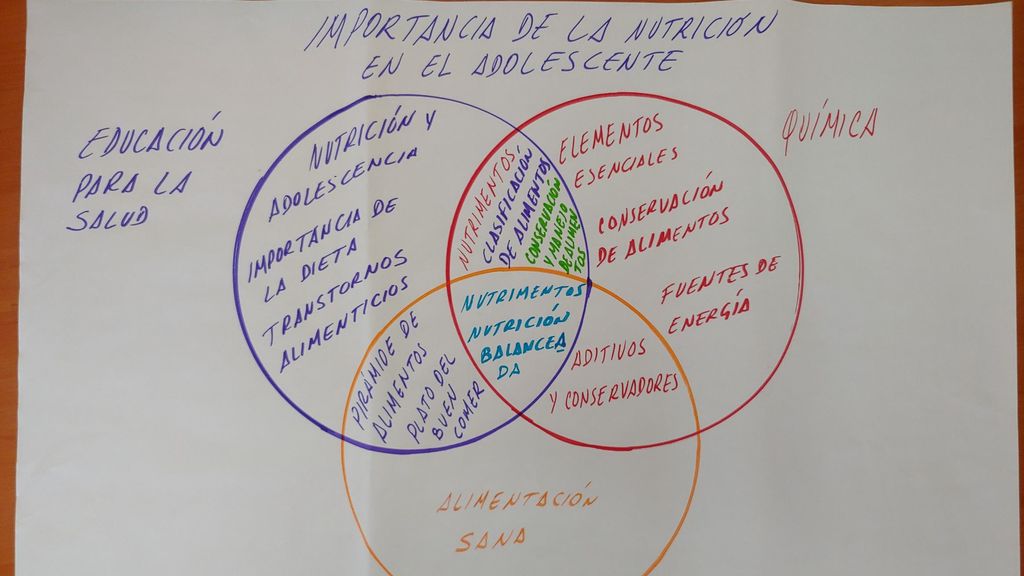 IMPORTANCIA DE LA NUTRICIÓN
EN EL ADOLESCENTE
EDUCACIÓN
PARA LA
SALUD
NUTRICIÓN Y
ADOLESCENCIA
IMPORTANCIA DE
LA DIETA
TRANSTORNOS
ALIMENTICIOS
NUTRIMENTOS,
CLASIFICACIÓN
DE ALIMENTOS
CONSERVACIÓN
Y MANEJO
DE ALIMEN
TOS
ELEMENTOS
ESENCIALES
CONSERVACIÓN
DE ALIMENTOS
FUENTES DE
ENERGÍA
QUÍMICA
NUTRIMENTOS
NUTRICIÓN
BALANCEA
DA
PIRÁMIDE DE
ALIMENTOS
PLATO DEL
BUEN
COMER
ADITIVOS
Y CONSERVADORES
ALIMENTACIÓN
SANA